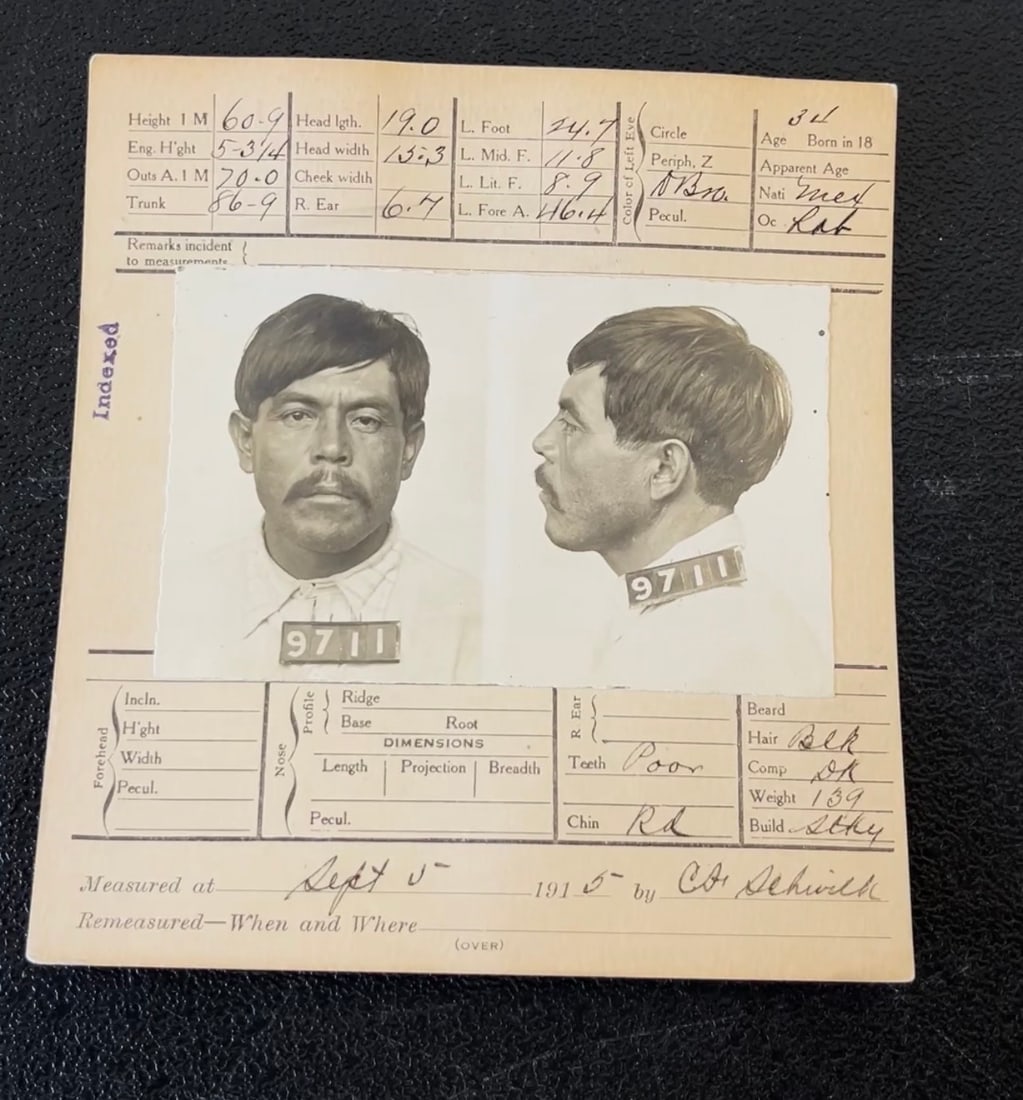 Height 1 M 60-9
Eng. H'ght 5-3 1/4
Outs A. 1 M 70.0
Trunk 86-9
Head lgth. 19.0
Head width 15.3
Cheek width
R. Ear 6.7
L. Foot 24.7
L. Mid. F. 11.8
L. Lit. F. 8.9
L. Fore A. 46.4
Color of Left Eye
Circle
Periph, Z
D Bro.
Pecul.
34
Age Born in 18
Apparent Age
Nati Mex
Oc Lab
Remarks incident
to measurements
Indexed
9711
9711
Forehead
Incln.
H'ght
Width
Pecul.
Nose
Profile
Ridge
Base Root
DIMENSIONS
Length Projection Breadth
Pecul.
R. Ear
Teeth Poor
Chin Rd
Beard
Hair Blk
Comp Dk
Weight 139
Build Stky
Measured at Sept 5 1915 by
Remeasured—When and Where
(OVER)